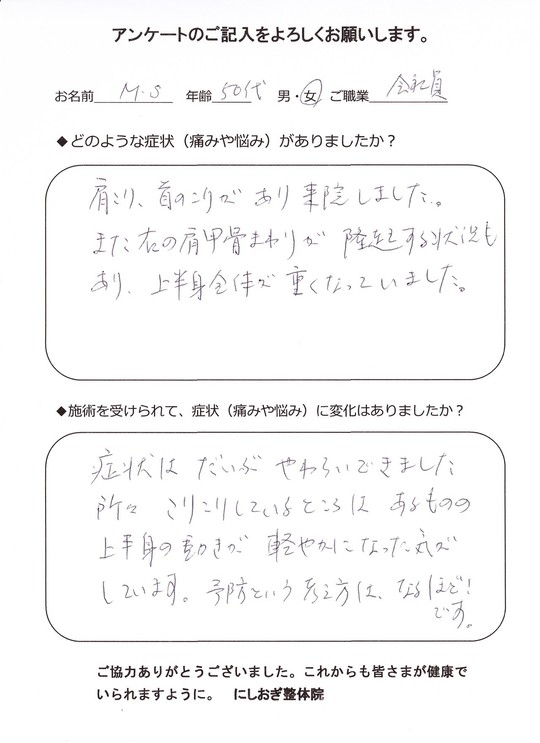 アンケートのご記入をよろしくお願いします。
お名前 M.S 年齢 50代 男・女 ご職業 会社員
◆どのような症状（痛みや悩み）がありましたか？
肩こり、首のこりがあり来院しました。
また右の肩甲骨まわりが隆起する状況も
あり、上半身全体が重くなっていました。
◆施術を受けられて、症状（痛みや悩み）に変化はありましたか？
症状はだいぶやわらいできました
所々こりこりしているところはあるものの
上半身の動きが軽やかになった気が
しています。予防という考え方は、なるほど！
です。
ご協力ありがとうございました。これからも皆さまが健康で
いられますように。 にしおぎ整体院